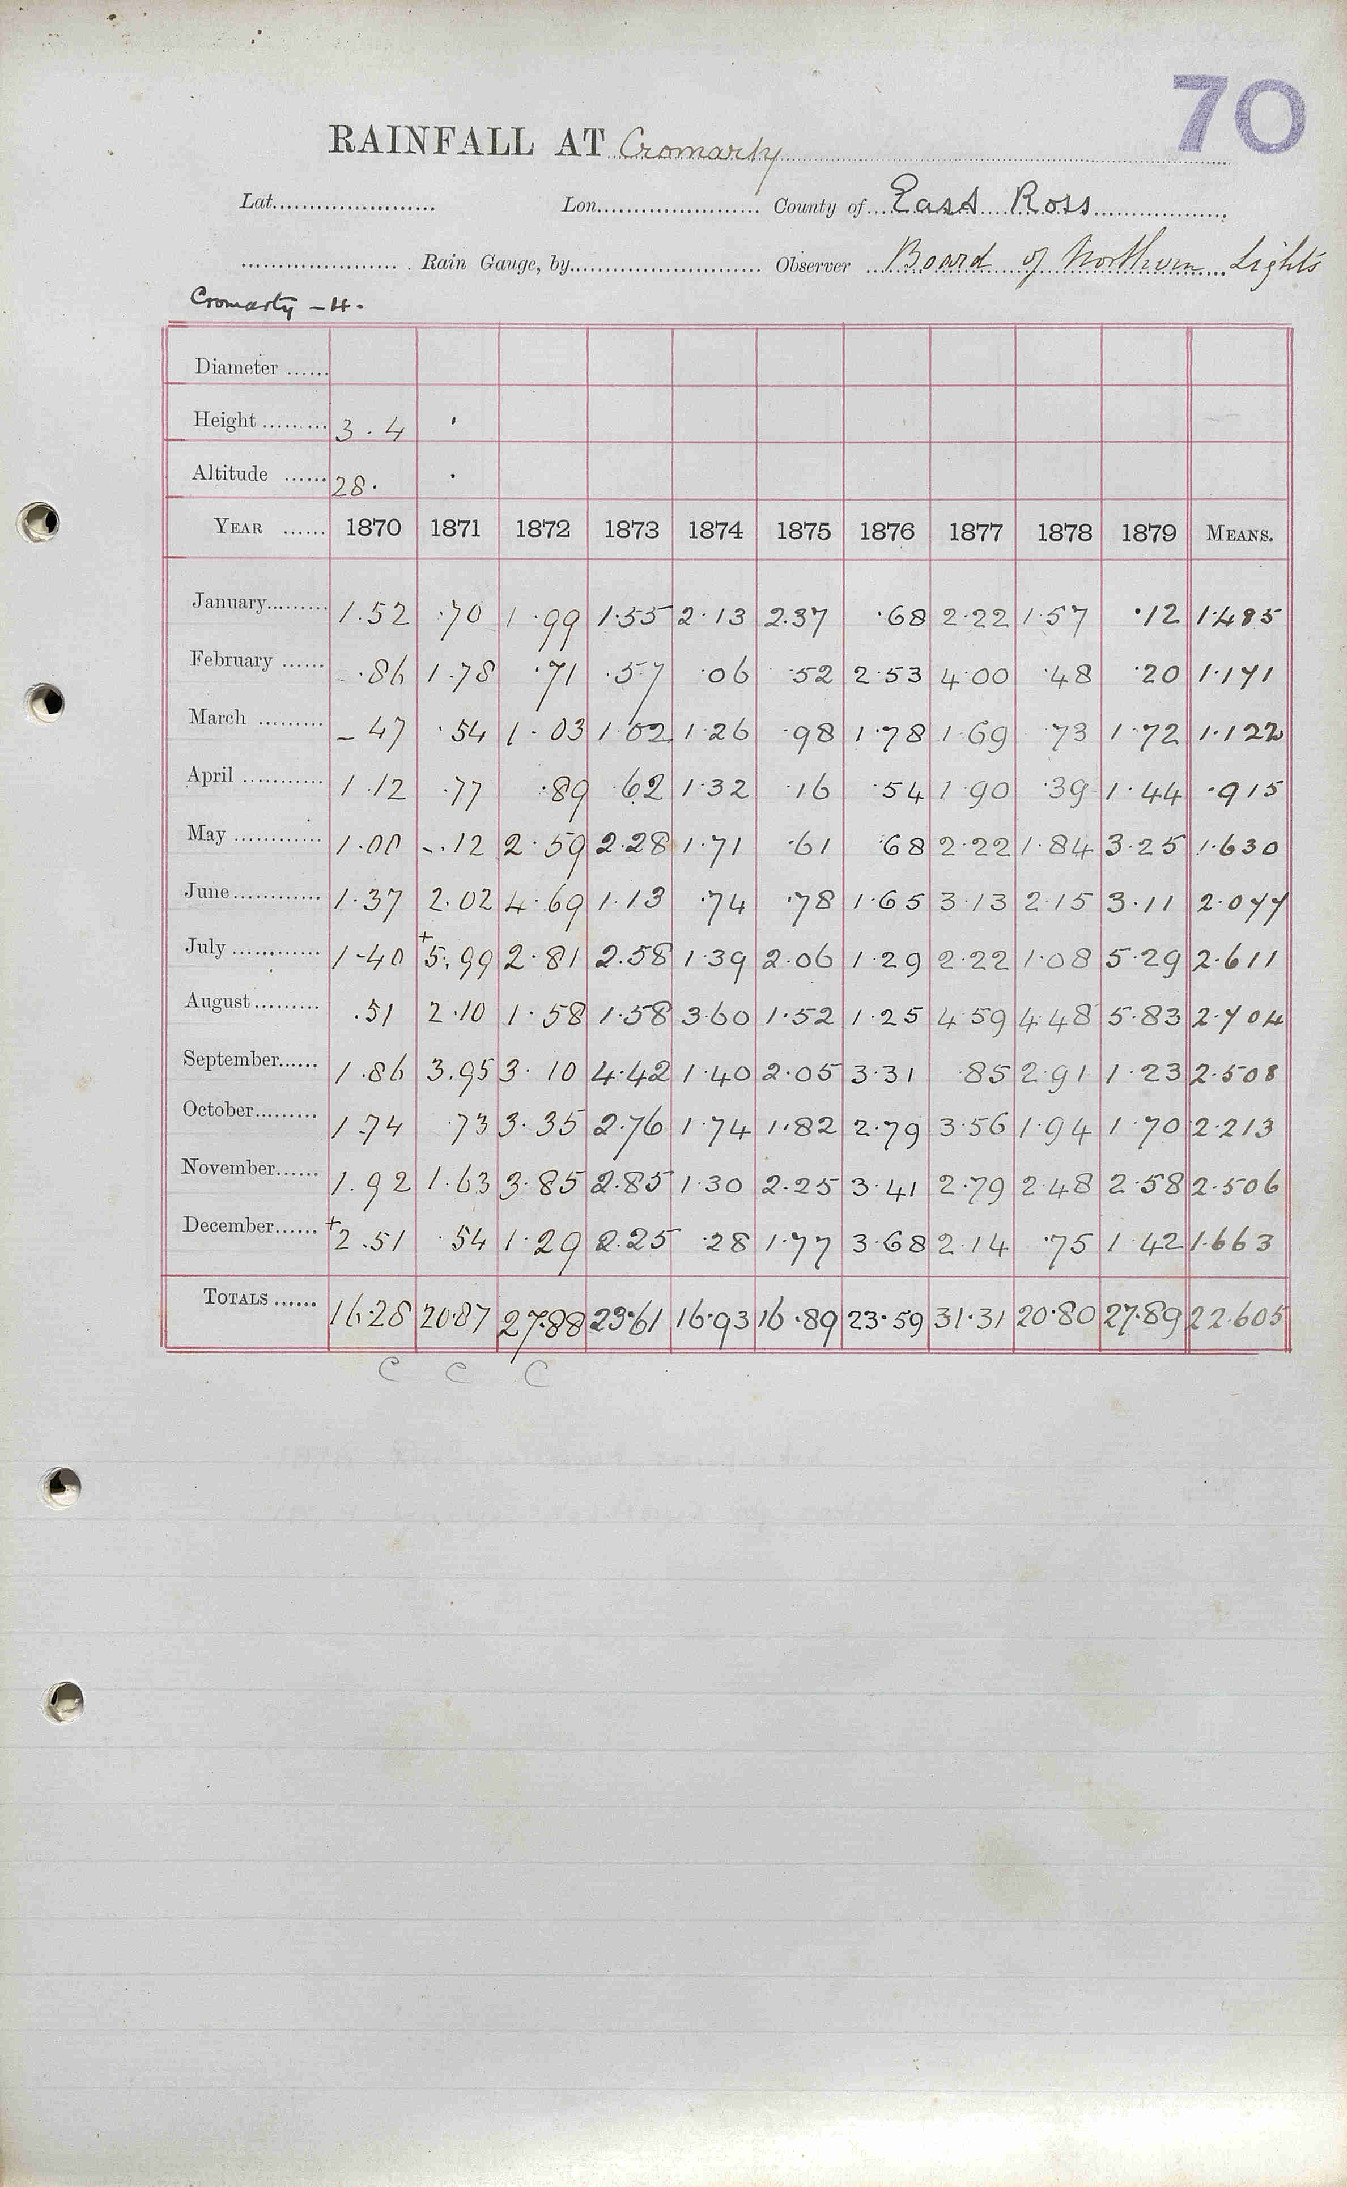 70
RAINFALL AT Cromarty
Lat...................... Lon...................... County of... East Ross
...................... Rain Gauge, by.......................... Observer Board of Northern Lights
Cromarty – H.
Diameter ......
Height ......... 3.4 '
Altitude ...... 28. .
YEAR ...... 1870 1871 1872 1873 1874 1875 1876 1877 1878 1879 MEANS.
January......... 1.52 .70 1.99 1.55 2.13 2.37 .68 2.22 1.57 .12 1.485
February ...... .86 1.78 .71 .57 .06 .52 2.53 4.00 .48 .20 1.171
March ......... – 47 .54 1.03 1.02 1.26 .98 1.78 1.69 .73 1.72 1.122
April ........... 1.12 .77 .89 .62 1.32 .16 .54 1.90 .39 1.44 .915
May ............. 1.00 -.12 2.59 2.28 1.71 .61 .68 2.22 1.84 3.25 1.630
June............. 1.37 2.02 4.69 1.13 .74 .78 1.65 3.13 2.15 3.11 2.077
July ............. 1.40 +5.99 2.81 2.58 1.39 2.06 1.29 2.22 1.08 5.29 2.611
August......... .51 2.10 1.58 1.58 3.60 1.52 1.25 4.59 4.48 5.83 2.704
September...... 1.86 3.95 3.10 4.42 1.40 2.05 3.31 .85 2.91 1.23 2.508
October......... 1.74 .73 3.35 2.76 1.74 1.82 2.79 3.56 1.94 1.70 2.213
November...... 1.92 1.63 3.85 2.85 1.30 2.25 3.41 2.79 2.48 2.58 2.506
December...... +2.51 .54 1.29 2.25 .28 1.77 3.68 2.14 .75 1.42 1.663
TOTALS ...... 16.28 20.87 27.88 23.61 16.93 16.89 23.59 31.31 20.80 27.89 22.605
C C C